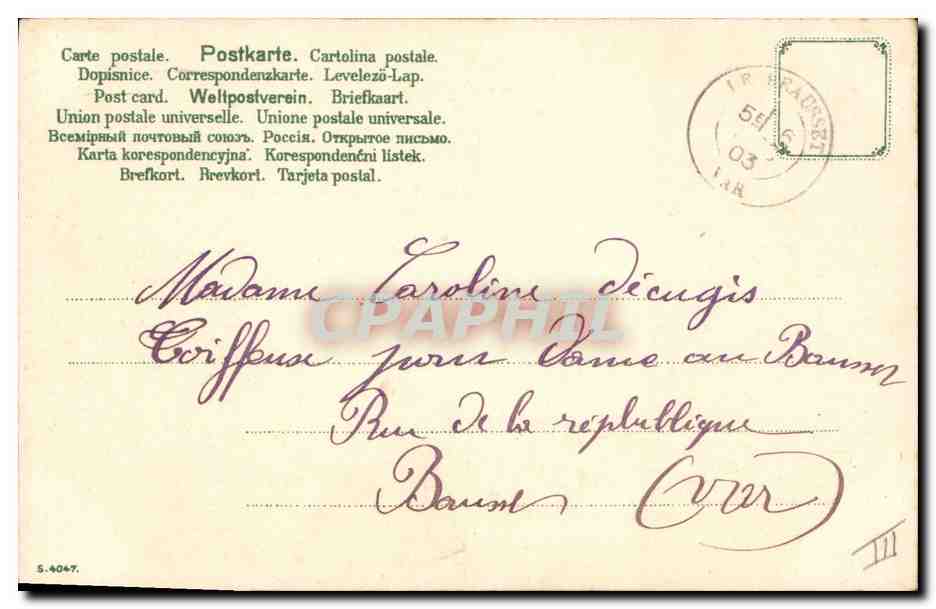 Carte postale. Postkarte. Cartolina postale.
Dopisnice. Correspondenzkarte. Levelező-Lap.
Post card. Weltpostverein. Briefkaart.
Union postale universelle. Unione postale universale.
Всемірный почтовый союзъ. Россія. Открытое письмо.
Karta korespondencyjna. Korespondenční listek.
Brefkort. Brevkort. Tarjeta postal.
LE BEAUSSET
5E 6
03
VAR
Madame Caroline décugis
CPAPHIL
Coiffeuse pour Dame au Bausset
Rue de la républlique
Bausset (var)
III
S.4047.